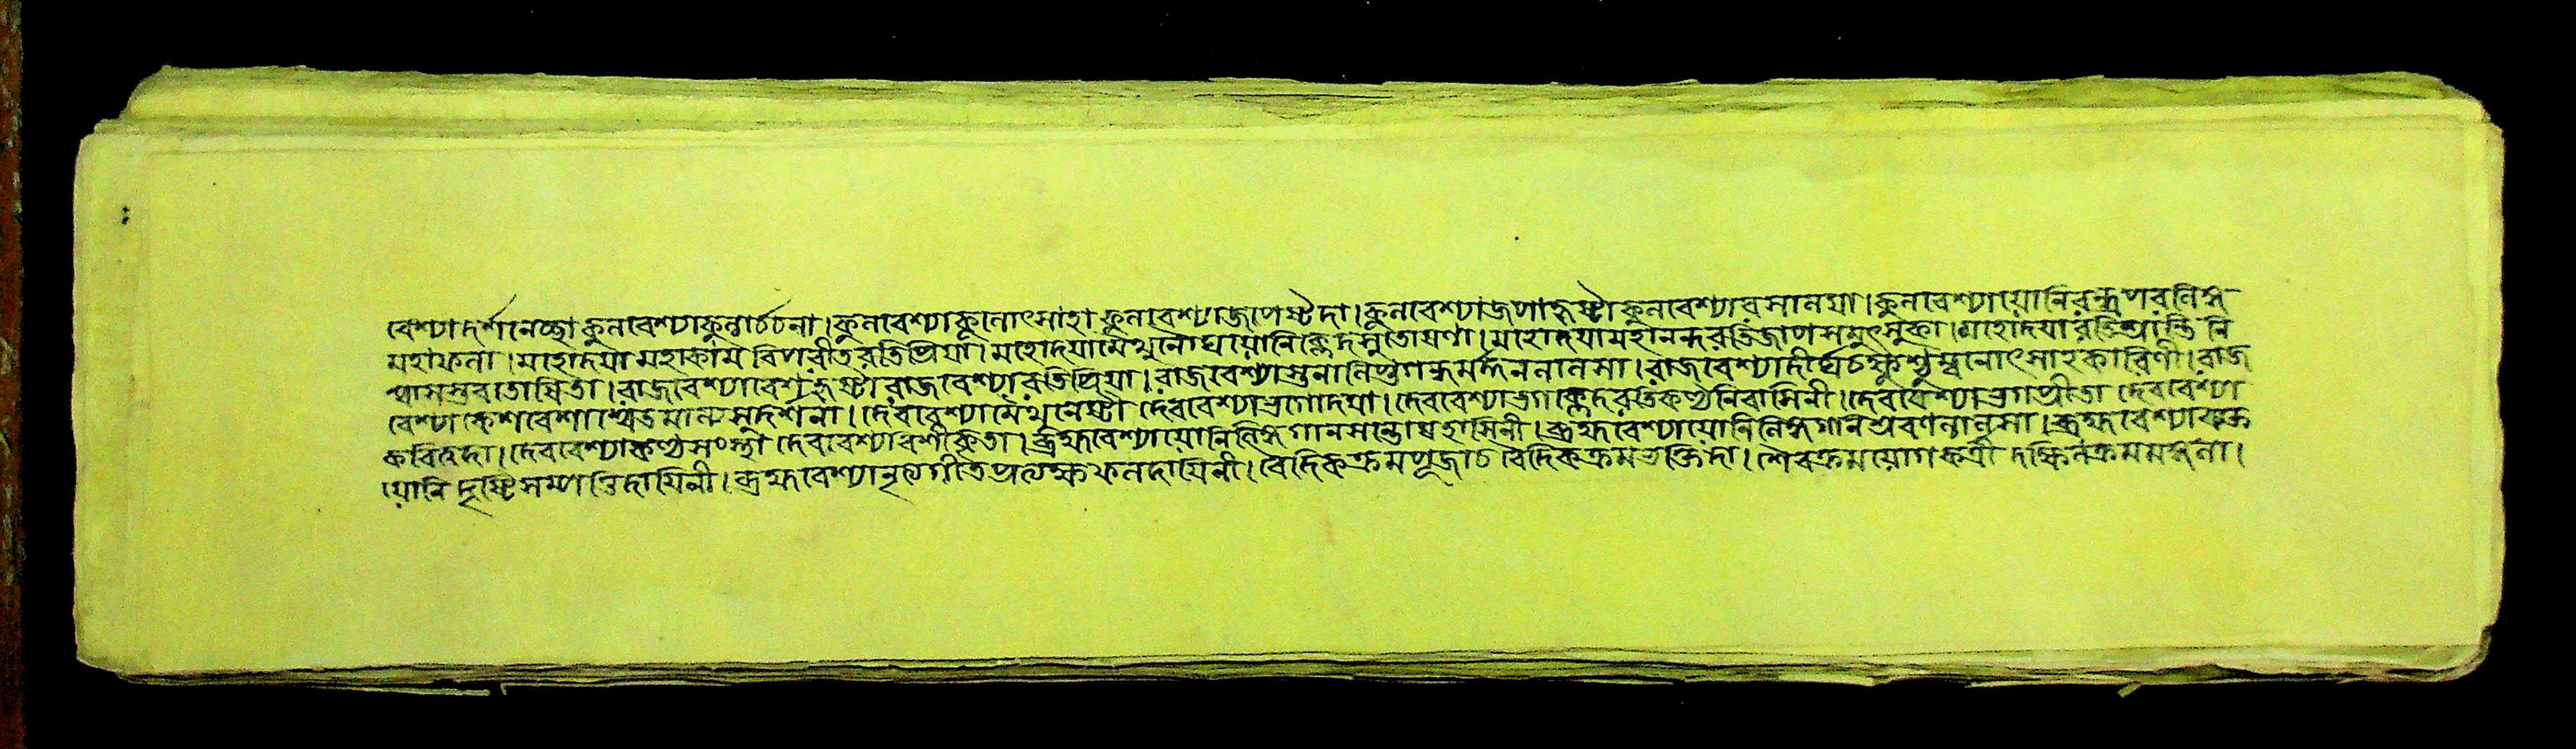 বেশ্যাদর্শনেচ্ছা কুলবেশ্যাকুলার্চ্চনা। কুলবেশ্যাকুলোৎসাহা কুলবেশ্যাজপেষ্টদা। কুলবেশ্যাজপাহৃষ্টা কুলবেশ্যাবসালয়া। কুলবেশ্যাযোনিরন্ধ্রপরলিঙ্গ
মহাফলা। মহোদয়া মহাকাম বিপরীতরতিপ্রিয়া। মহোদয়ামৈথুনোঘা যোনিক্লেদসুতোষণা। মহোদয়ামহানন্দরতিজাপসমুৎসুকা। মহোদয়ারতিশ্রান্তি নি
শ্বাসসুরতান্বিতা। রাজবেশ্যাবেশহৃষ্টা রাজবেশ্যারতিপ্রিয়া। রাজবেশ্যাস্তনালিপ্তগন্ধমর্দ্দনলালসা। রাজবেশ্যাদীর্ঘচক্ষুশ্চুম্বনোৎসাহকারিণী। রাজ
বেশ্যা কেশবেশাশ্বেতমাল্যসুদর্শনা। দেববেশ্যামৈথুনেষ্টা দেববেশ্যাভগোদয়া। দেববেশ্যাভগক্লেদরতিকণ্ঠনিবাসিনী। দেববেশ্যাভগপ্রীতা দেববেশ্যা
কবিত্বদা। দেববেশ্যাকণ্ঠসংস্থা দেববেশ্যাবশীকৃতা। ব্রহ্মবেশ্যাযোনিলিঙ্গগানসন্তোষহাসিনী। ব্রহ্মবেশ্যাযোনিলিঙ্গগানশ্রবণলালসা। ব্রহ্মবেশ্যাবক্ত্র
যোনি দৃষ্টিসম্পত্তিদায়িনী। ব্রহ্মবেশ্যানৃত্যগীতপ্রত্যক্ষফলদায়িনী। বৈদিকক্রমপূজাচ বৈদিকক্রমভক্তিদা। শৈবক্রমযোগকর্ত্রী দক্ষিণক্রমমঙ্গলা।